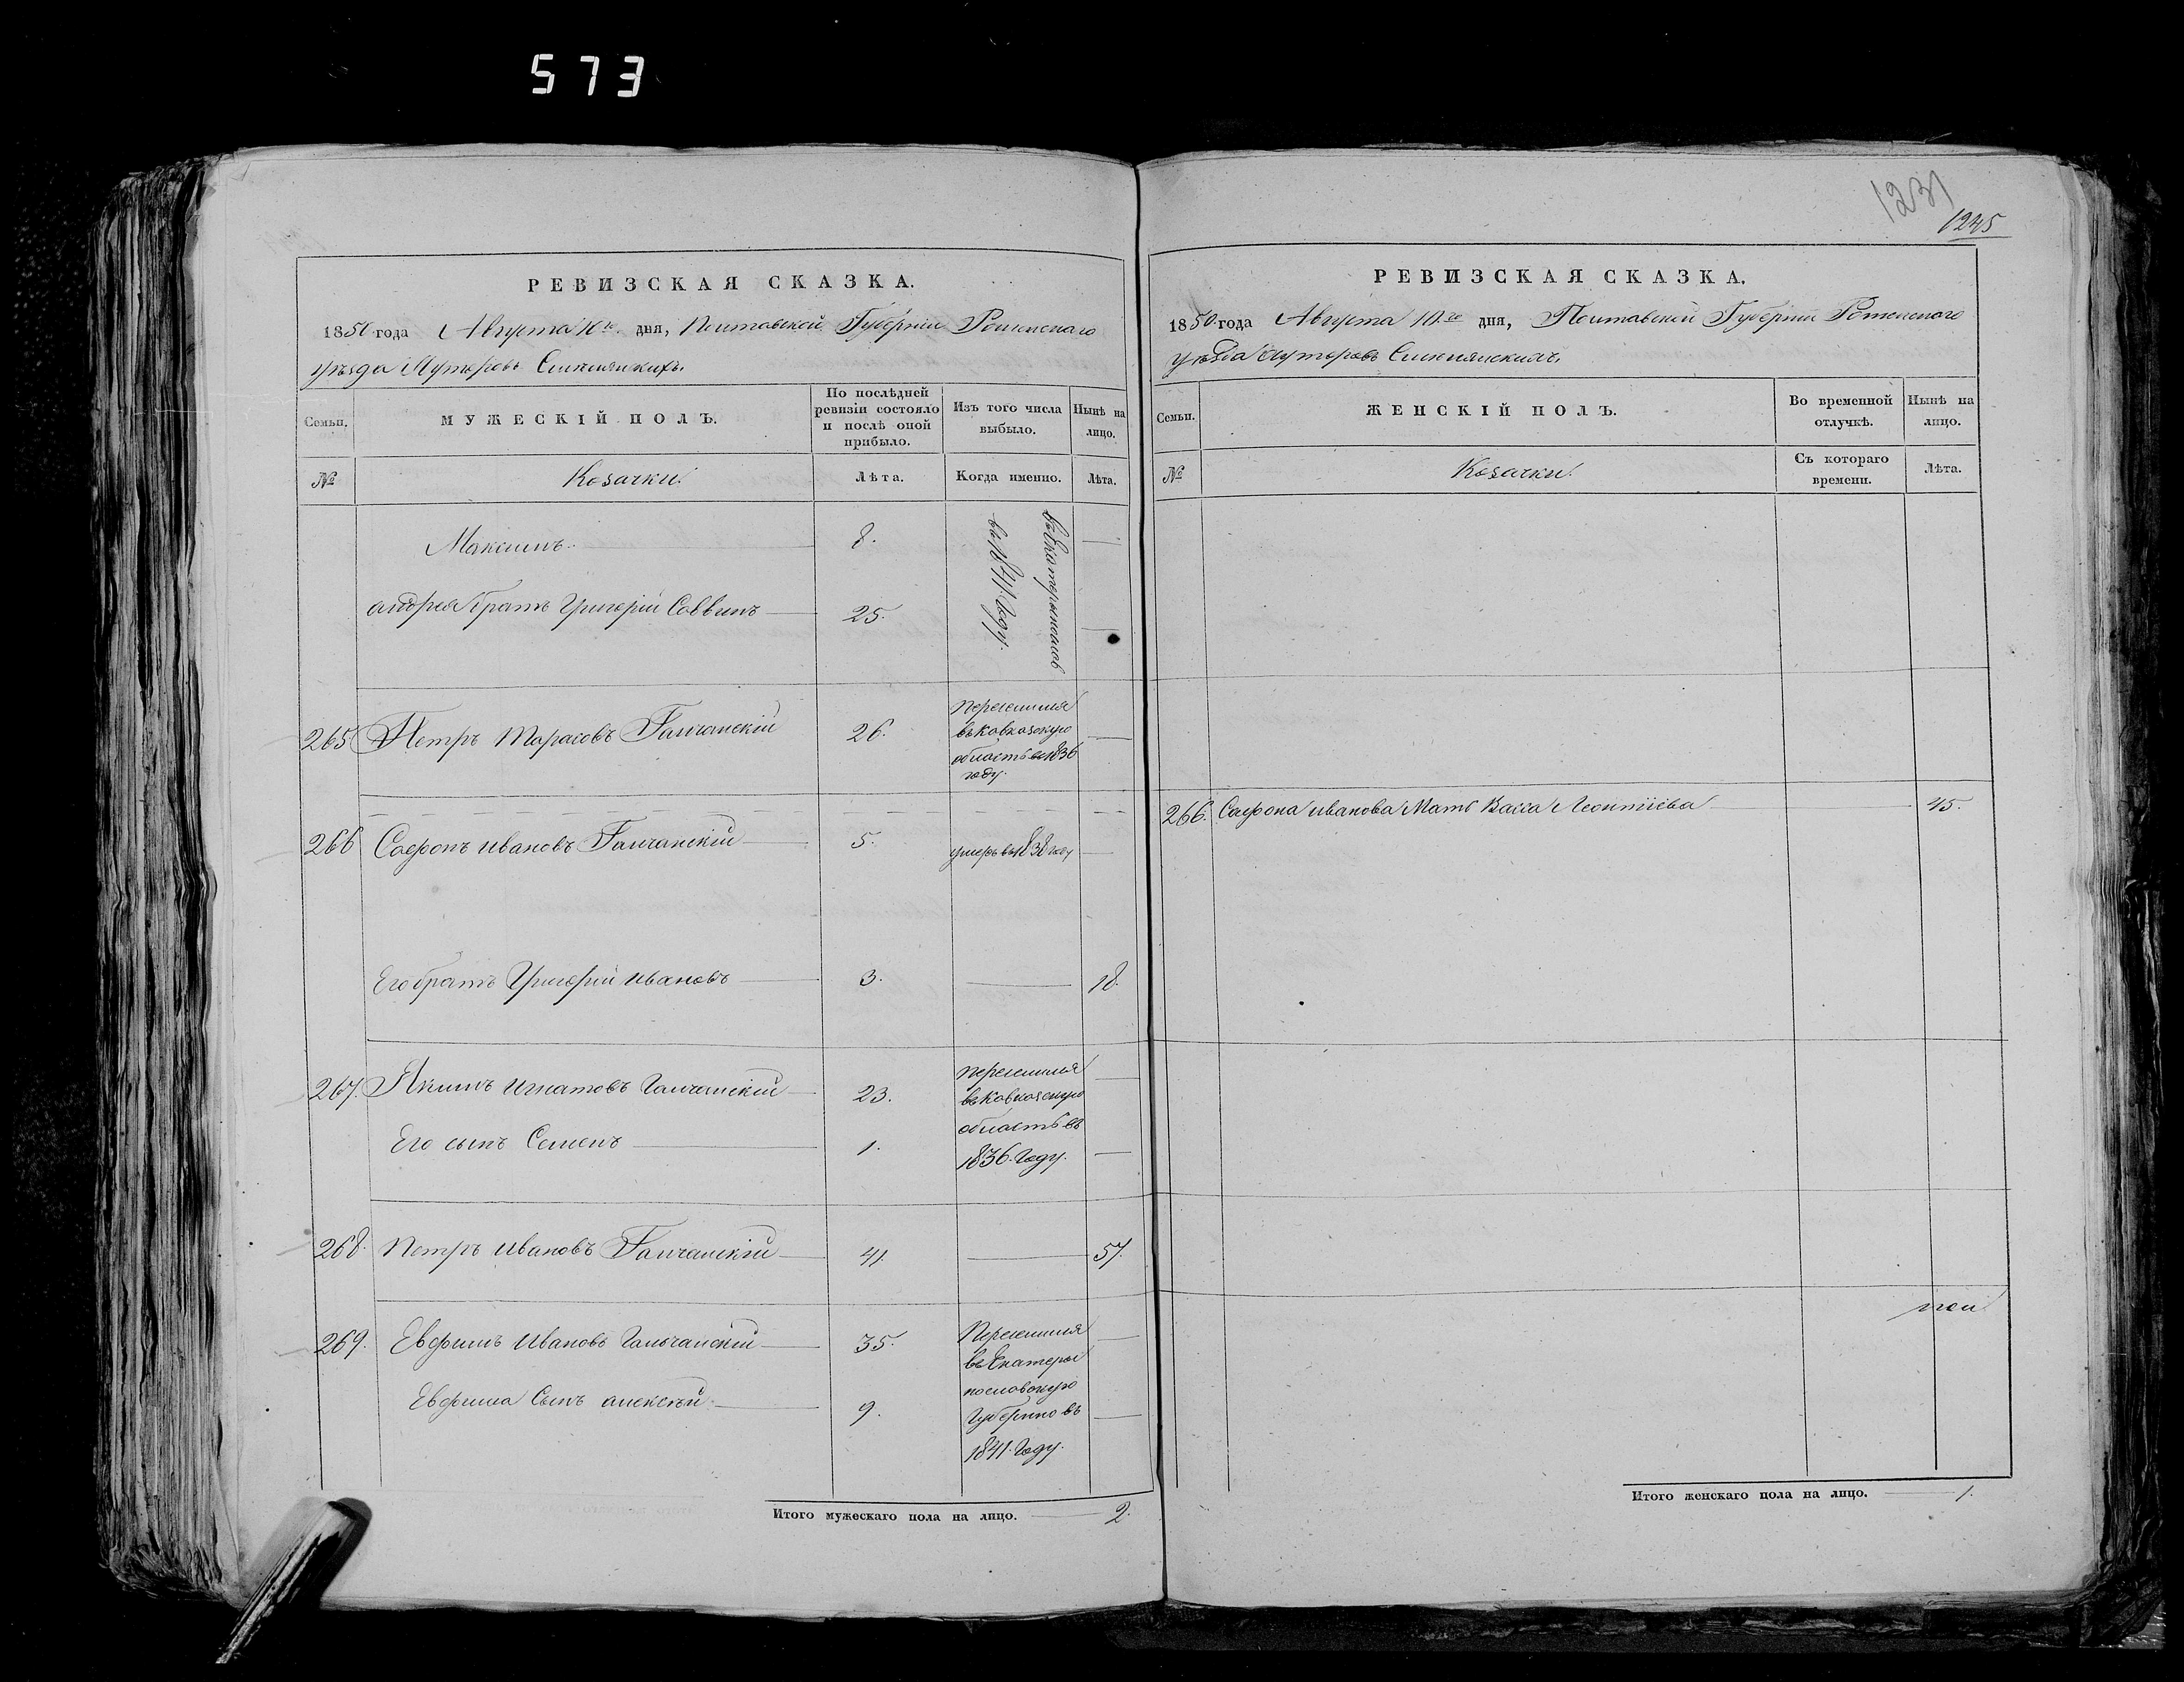 573
1231
1245
РЕВИЗСКАЯ СКАЗКА.
1850 года Августа 10го дня, Полтавской Губерніи Роменского
уѣзда Хуторовъ
Семьи.
МУЖЕСКІЙ ПОЛЪ.
По послѣдней ревизіи состояло и послѣ оной прибыло.
Изъ того числа выбыло.
Нынѣ на лицо.
№
Козачки.
Лѣта.
Когда именно.
Лѣта.
Максимъ 8. —
андрея братъ Григорій Саввинъ 25. —
въ Екатеринослов
въ 1841. Году.
265 Петръ Тарасовъ Галчанскій 26. —
переселился
въ Кавказскую
область въ 1836
году.
266 Софронъ Ивановъ Галчанскій 5. умеръ въ 1838 году —
Его братъ Григорій Ивановъ 3. — 18.
267. Якимъ Игнатовъ Галчанскій 23. —
Его сынъ Семенъ 1. —
переселился
въ Кавказскую
область въ
1836. Году.
268. Петръ Ивановъ Галчанскій 41. — 57.
269. Евфимъ Ивановъ Галчанскій 35. —
Евфима Сынъ алексѣй 9. —
Переселился
въ Екатери
нославскую
Губернію въ
1841. Году.
Итого мужескаго пола на лицо. — 2.
РЕВИЗСКАЯ СКАЗКА.
1850 года Августа 10.го дня, Полтавской Губерніи Роменского
уѣзда Хуторовъ
Семьи.
ЖЕНСКІЙ ПОЛЪ.
Во временной отлучкѣ.
Нынѣ на лицо.
№
Козачки.
Съ котораго времени.
Лѣта.
266. Софрона Иванова Мать Васса Леонтіева — 45.
Итого женскаго пола на лицо. — 1.